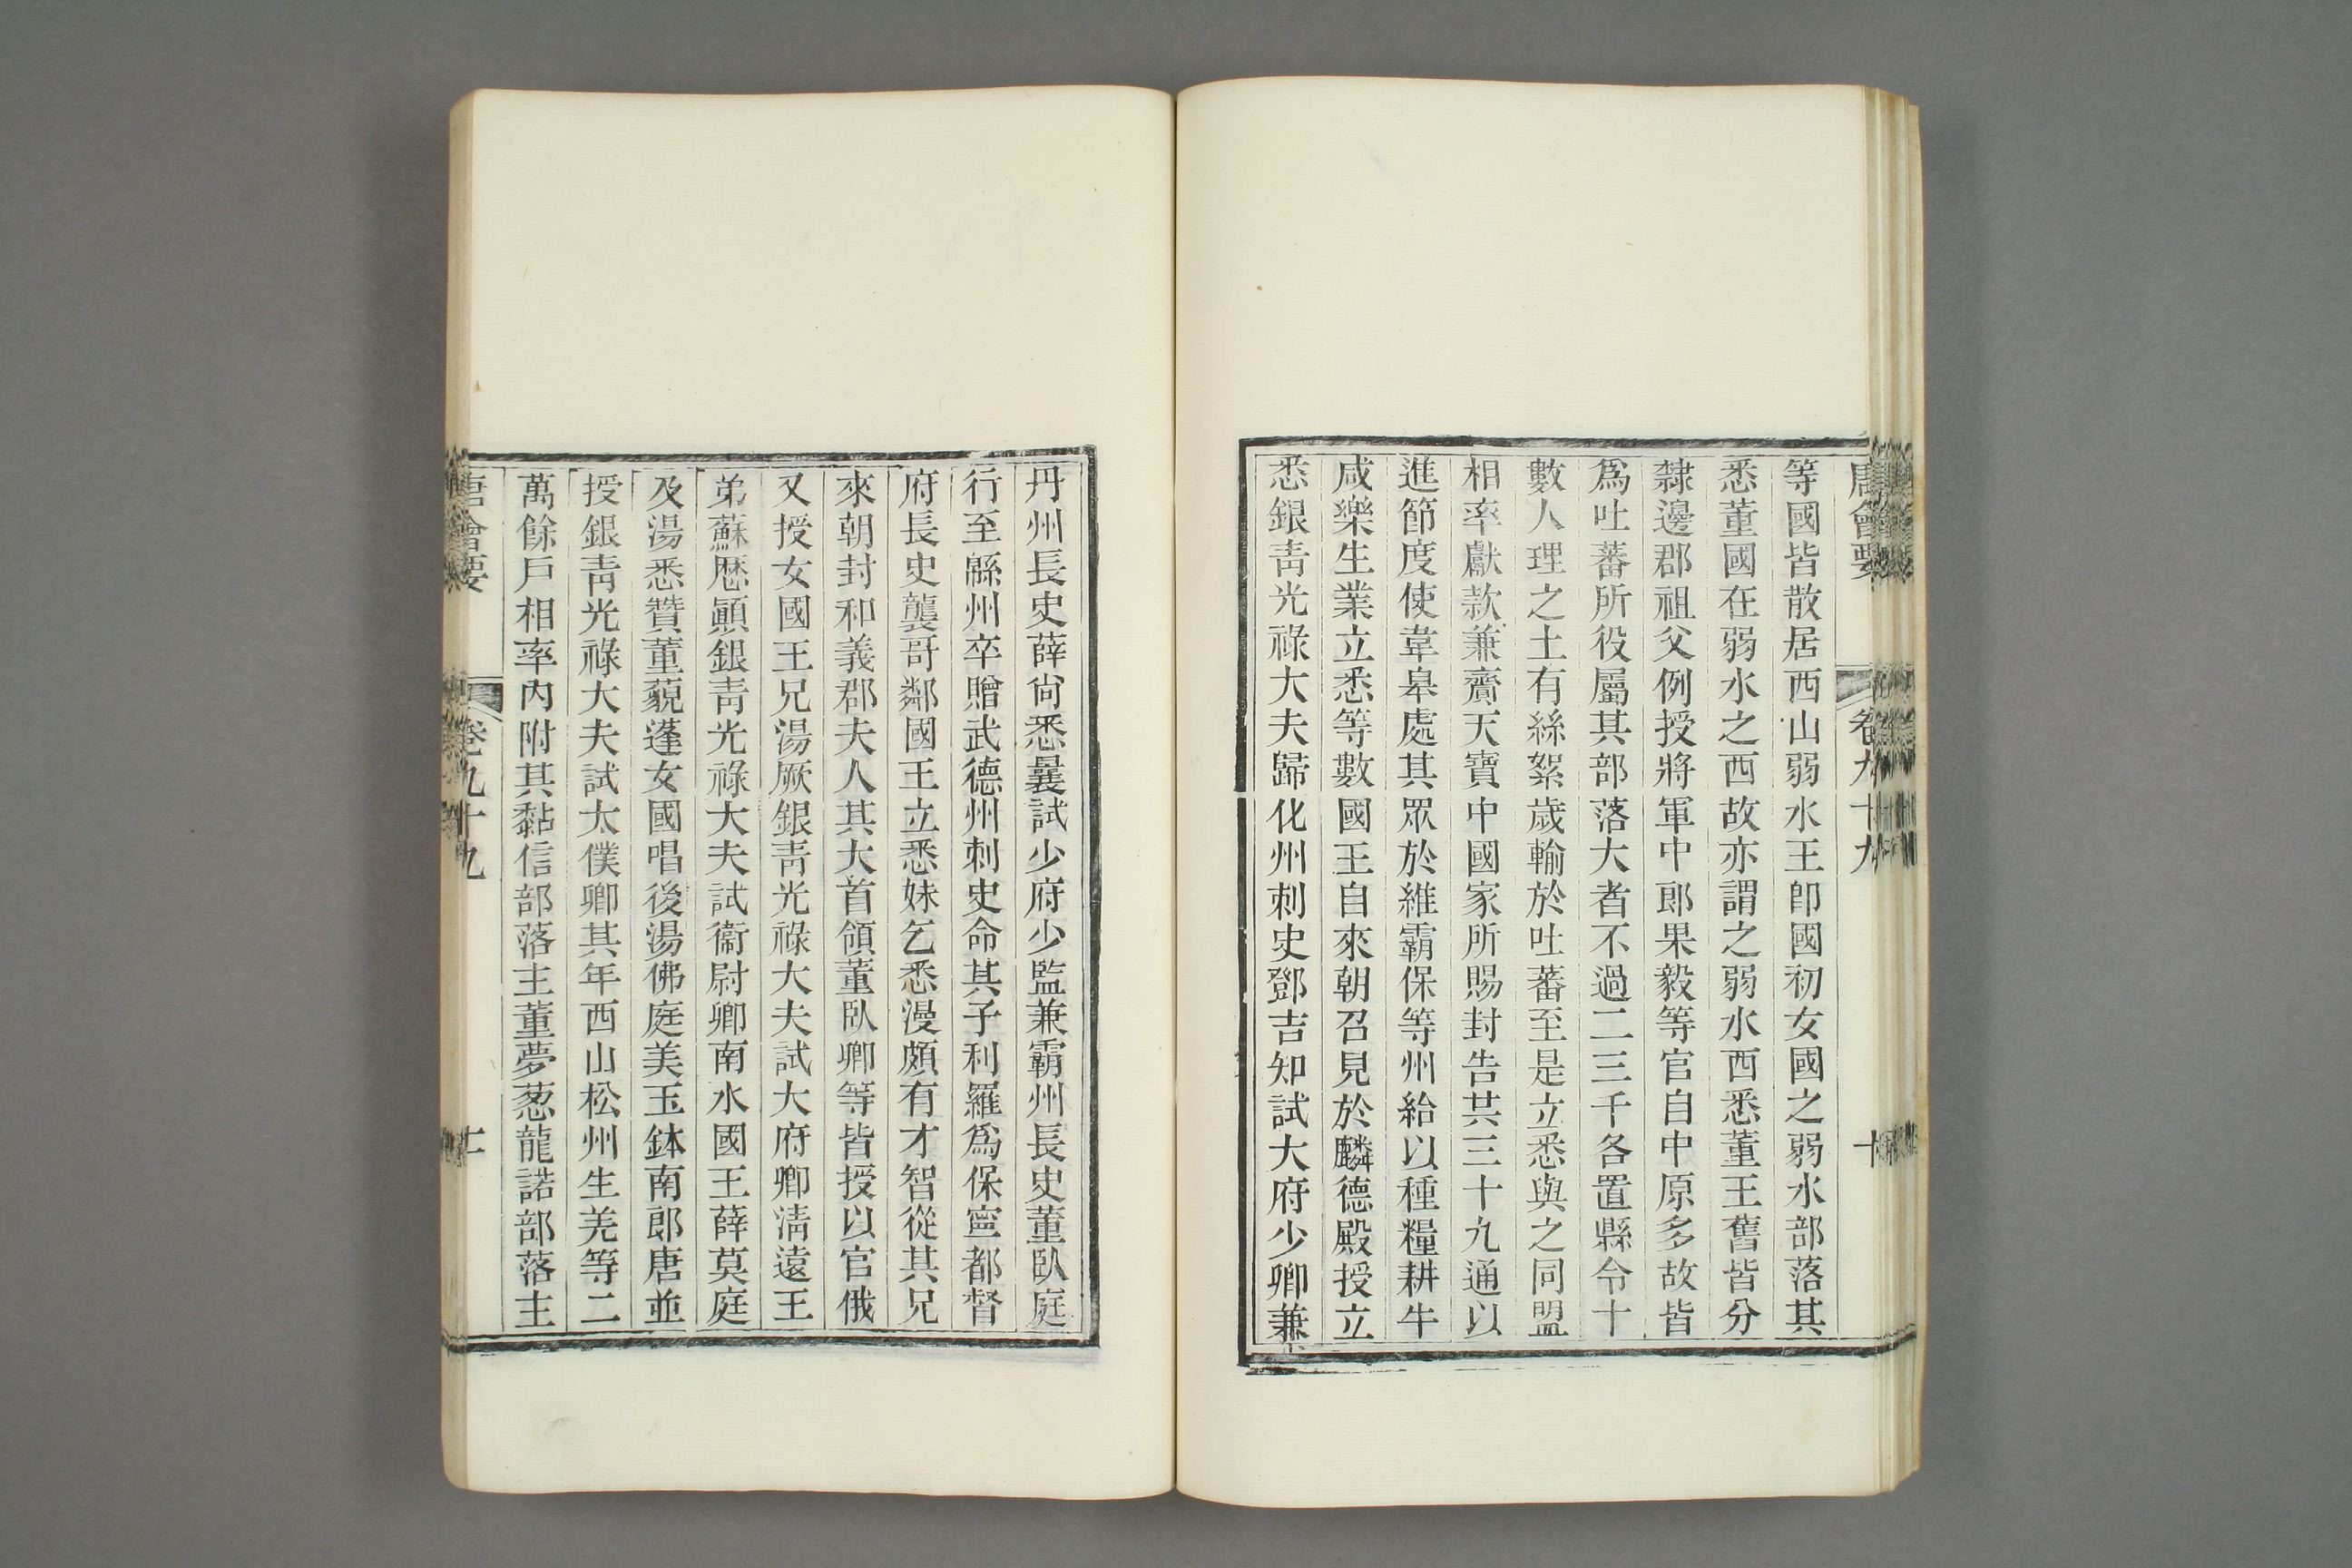 唐會要 卷九十九 十
等國皆散居西山弱水王卽國初女國之弱水部落其
悉董國在弱水之西故亦謂之弱水西悉董王舊皆分
隸邊郡祖父例授將軍中郞果毅等官自中原多故皆
爲吐蕃所役屬其部落大者不過二三千各置縣令十
數人理之土有絲絮歲輸於吐蕃至是立悉與之同盟
相率獻款兼齎天寶中國家所賜封告共三十九通以
進節度使韋皋處其眾於維霸保等州給以種糧耕牛
咸樂生業立悉等數國王自來朝召見於麟德殿授立
悉銀靑光祿大夫歸化州刺史鄧吉知試大府少卿兼
丹州長史薛尙悉曩試少府少監兼霸州長史董臥庭
行至緜州卒贈武德州刺史命其子利羅爲保寧都督
府長史襲哥鄰國王立悉妹乞悉漫頗有才智從其兄
來朝封和義郡夫人其大首領董臥卿等皆授以官俄
又授女國王兄湯厥銀靑光祿大夫試大府卿淸遠王
弟蘇歷顚銀靑光祿大夫試衞尉卿南水國王薛莫庭
及湯悉贊董藐蓬女國唱後湯佛庭美玉鉢南郎唐並
授銀靑光祿大夫試太僕卿其年西山松州生羌等二
萬餘戶相率內附其黏信部落主董夢葱龍諾部落主
唐會要 卷九十九